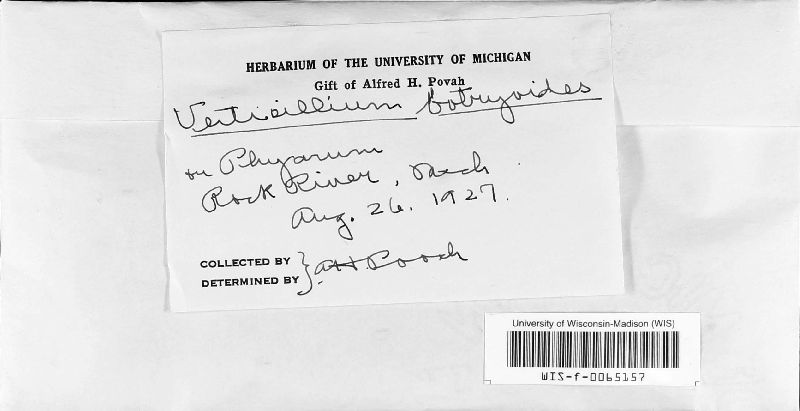 HERBARIUM OF THE UNIVERSITY OF MICHIGAN
Gift of Alfred H. Povah
Verticillium botryoides
on Physarum
Rock River, Mich.
Aug. 26. 1927.
COLLECTED BY
DETERMINED BY } A.H. Povah
University of Wisconsin-Madison (WIS)
WIS-f-0065157